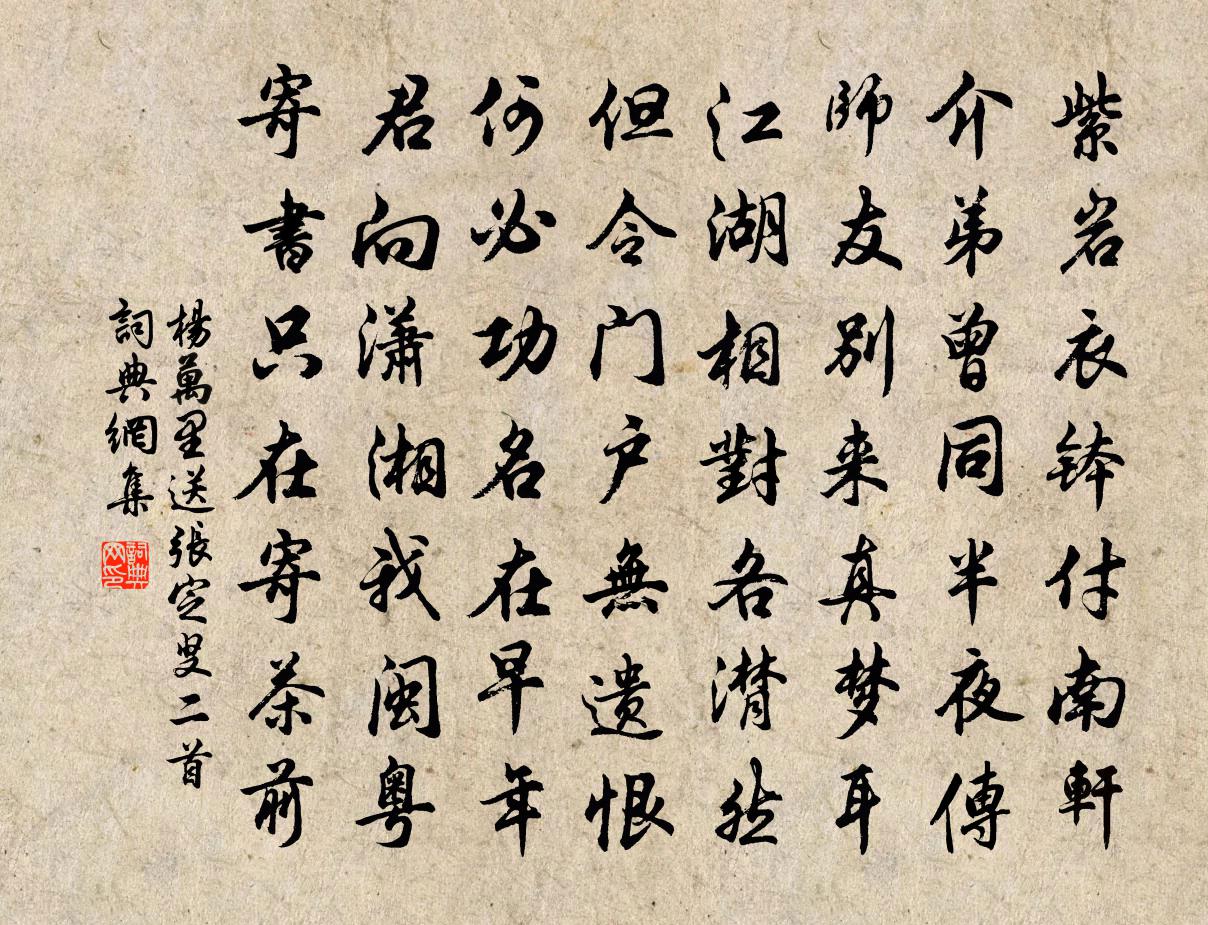 紫岩衣钵付南軒
介弟曾同半夜傳
師友别来真梦耳
江湖相對各潸然
但令门户無遗恨
何必功名在早年
君向瀟湘我闽粤
寄書只在寄茶前
楊萬里送張定叟二首
詞典網集
詞典网印